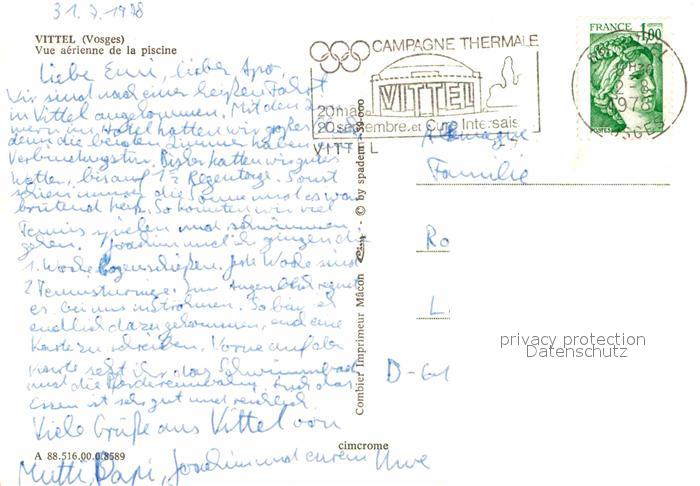 31.7.1978
VITTEL (Vosges)
Vue aérienne de la piscine
Liebe Emi, lieber Apo,
Wir sind nach einer heißen Fahrt
in Vittel angekommen. Mit den
im Hotel hatten wir großes
denn die beiden Zimmer haben
Verbindungstür. Bisher hatten wir gutes
Wetter, bis auf 1½ Regentage. Sonst
schien immer die Sonne und es war
brütend heiß. So konnten wir viel
Tennis spielen und schwimmen
gehen. Joachim und ich gingen die
1. Woche Bogenschießen. Jede Woche sind
2 Tennisturniere. Im Augenblick regnet
es bei uns in Strömen. So bin ich
endlich dazu gekommen, euch eine
Karte zu schreiben. Vorne auf der
Karte seht ihr das Schwimmbad
und die Auch das
Essen ist sehr gut und reichlich.
Viele Grüße aus Vittel von
Mutti, Papi, Joachim und eurem Uwe
A 88.516.00.0.8589
cimcrome
Combier Imprimeur Mâcon © by spadem
CAMPAGNE THERMALE
VITTEL
20 mai
20 septembre et Cure Intersais
VITTEL
FRANCE 1,00
POSTES
1978
VOSGES
Allemagne
Familie
Ro
L
D-
privacy protection
Datenschutz